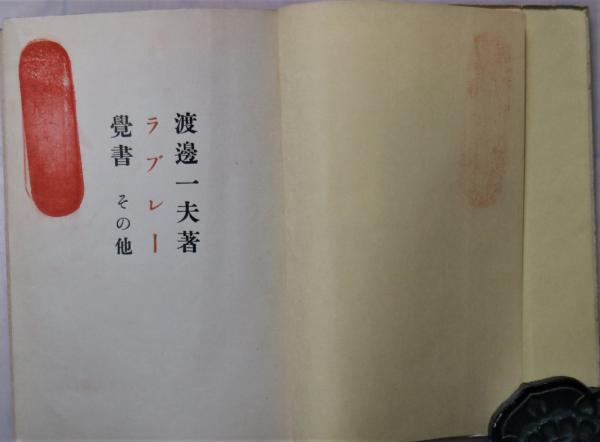 渡邊一夫著
ラブレー
覺書 その他